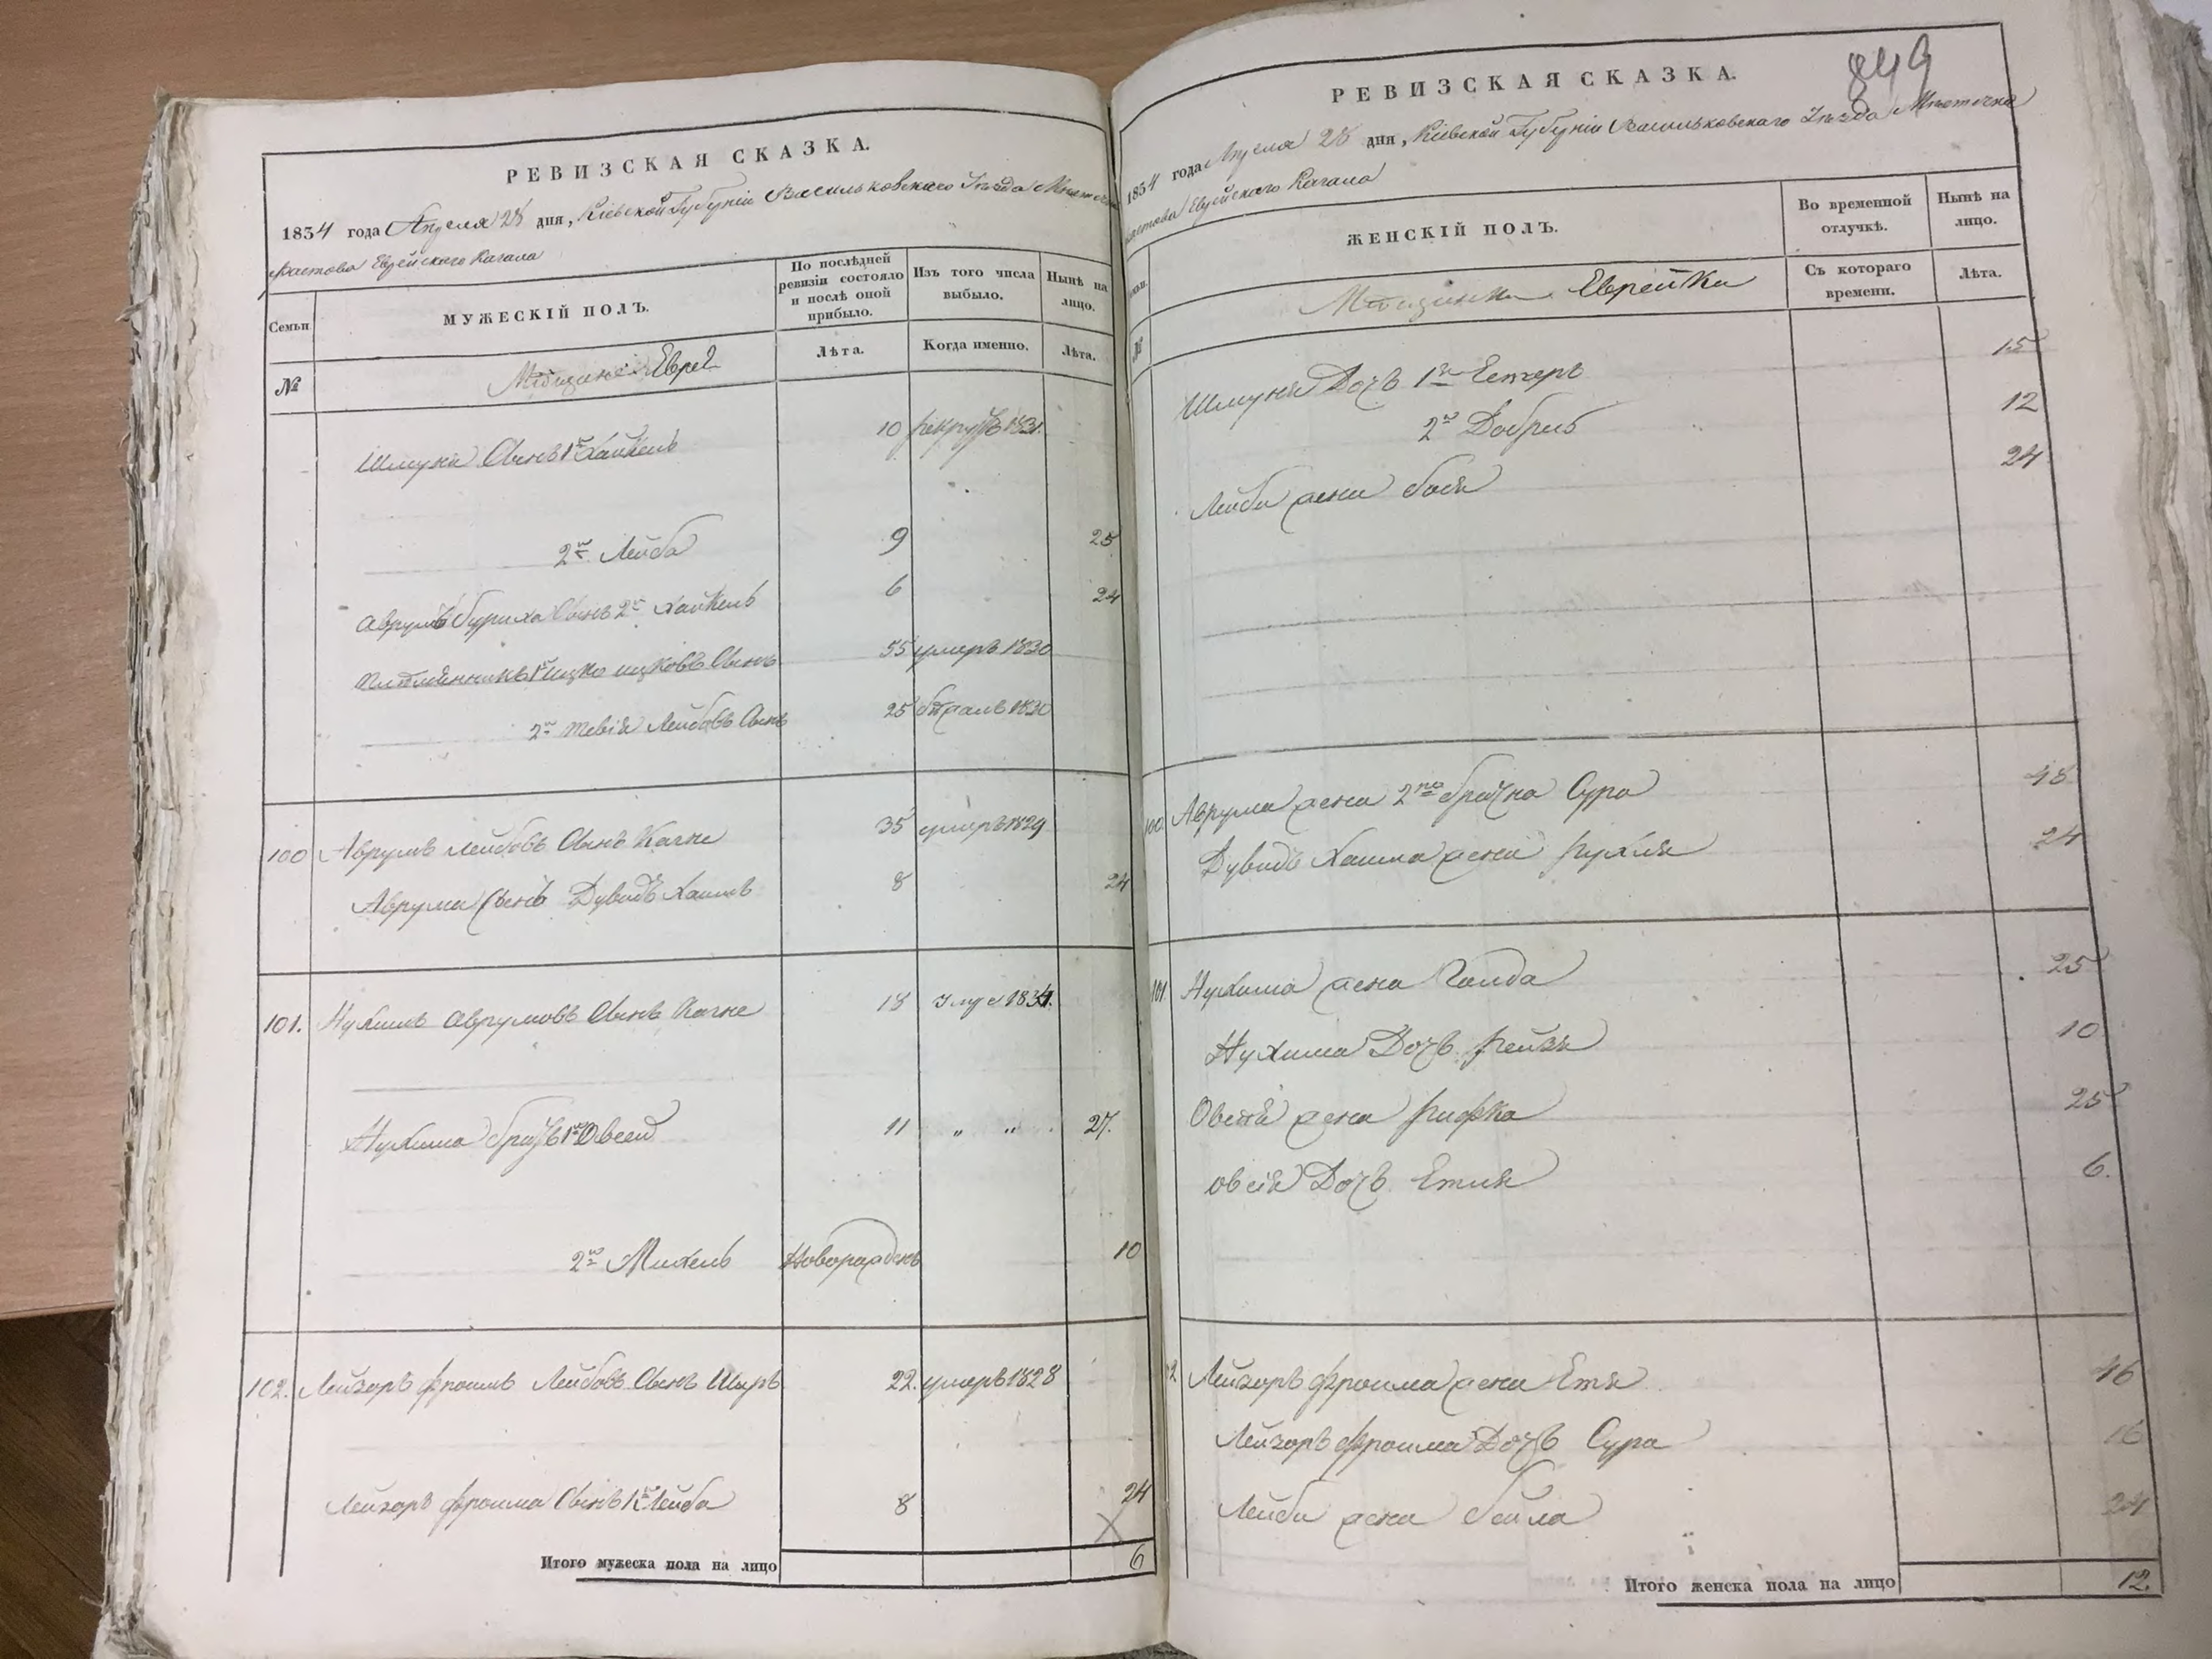 РЕВИЗСКАЯ СКАЗКА.
1834 года Апреля 28 дня, Кіевской Губерніи Васильковскаго Уезда Местечка
Фастова Еврейскаго Кагала
Семьи
МУЖЕСКІЙ ПОЛЪ.
По послѣдней ревизіи состояло и послѣ оной прибыло.
Изъ того числа выбыло.
Нынѣ на лицо.
№
Евреи
Лѣта.
Когда именно.
Лѣта.
Шмуля Сынъ 1й Хайкель 10 рекрутъ 1831.
2й Лейба 9 25
Аврумъ Сынъ 2й Хайкель 6 24
Племянникъ 1й Ицко Ицковъ Сынъ 55 умеръ 1830
2й Тевія Лейбовъ Сынъ 25 бежалъ 1830
100 Аврумъ Лейбовъ Сынъ Кагне 35 умеръ 1829
Аврума Сынъ Дувидъ Хаимъ 8 24
101. Нухимъ Аврумовъ Сынъ Кагне 18 1834.
Нухима братъ 1й Овсей 11 " " 27.
2й Михель Новорожденъ 10
102. Лейзоръ Фроимъ Лейбовъ Сынъ Шыръ 22. умеръ 1828
Лейзоръ Фроима Сынъ 1й Лейба 8 24
Итого мужеска пола на лицо 6
849
РЕВИЗСКАЯ СКАЗКА.
1834 года Апреля 28 дня, Кіевской Губерніи Васильковскаго Уезда Местечка
Фастова Еврейскаго Кагала
ЖЕНСКІЙ ПОЛЪ.
Во временной отлучкѣ.
Нынѣ на лицо.
№
Еврейки
Съ котораго времени.
Лѣта.
Шмуля Дочь 1я Естеръ 15
2я Добришъ 12
Лейби жена Бася 24
100 Аврума жена 2го брачна Сура 48
Дувидъ Хаима жена Рухля 24
101 Нухима жена Голда 25
Нухима Дочь Рейзя 10
Овсея жена Рифка 25
Овсія Дочь Етля 6.
Лейзоръ Фроима жена Етя 46
Лейзоръ Фроима Дочь Сура 16
Лейби жена Бейла 24
Итого женска пола на лицо 12.